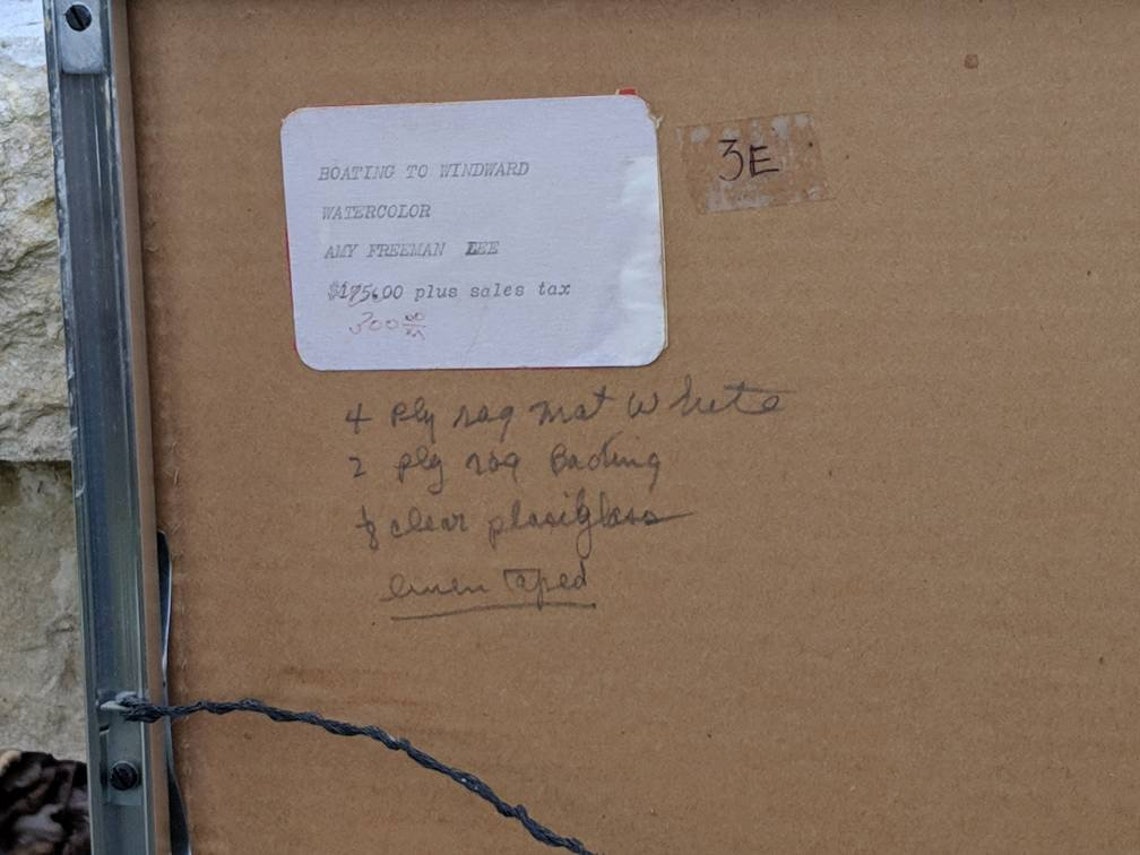 BOATING TO WINDWARD
WATERCOLOR
AMY FREEMAN LEE
$175.00 plus sales tax
300.00
3E
4 ply rag mat white
2 ply rag Backing
1/8 clear plaxiglass
linen Taped